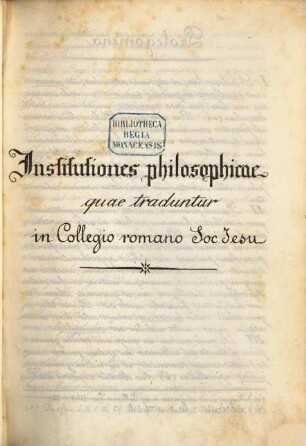 BIBLIOTHECA
REGIA
MONACENSIS
Institutiones philosophicae
quae traduntur
in Collegio romano Soc Jesu